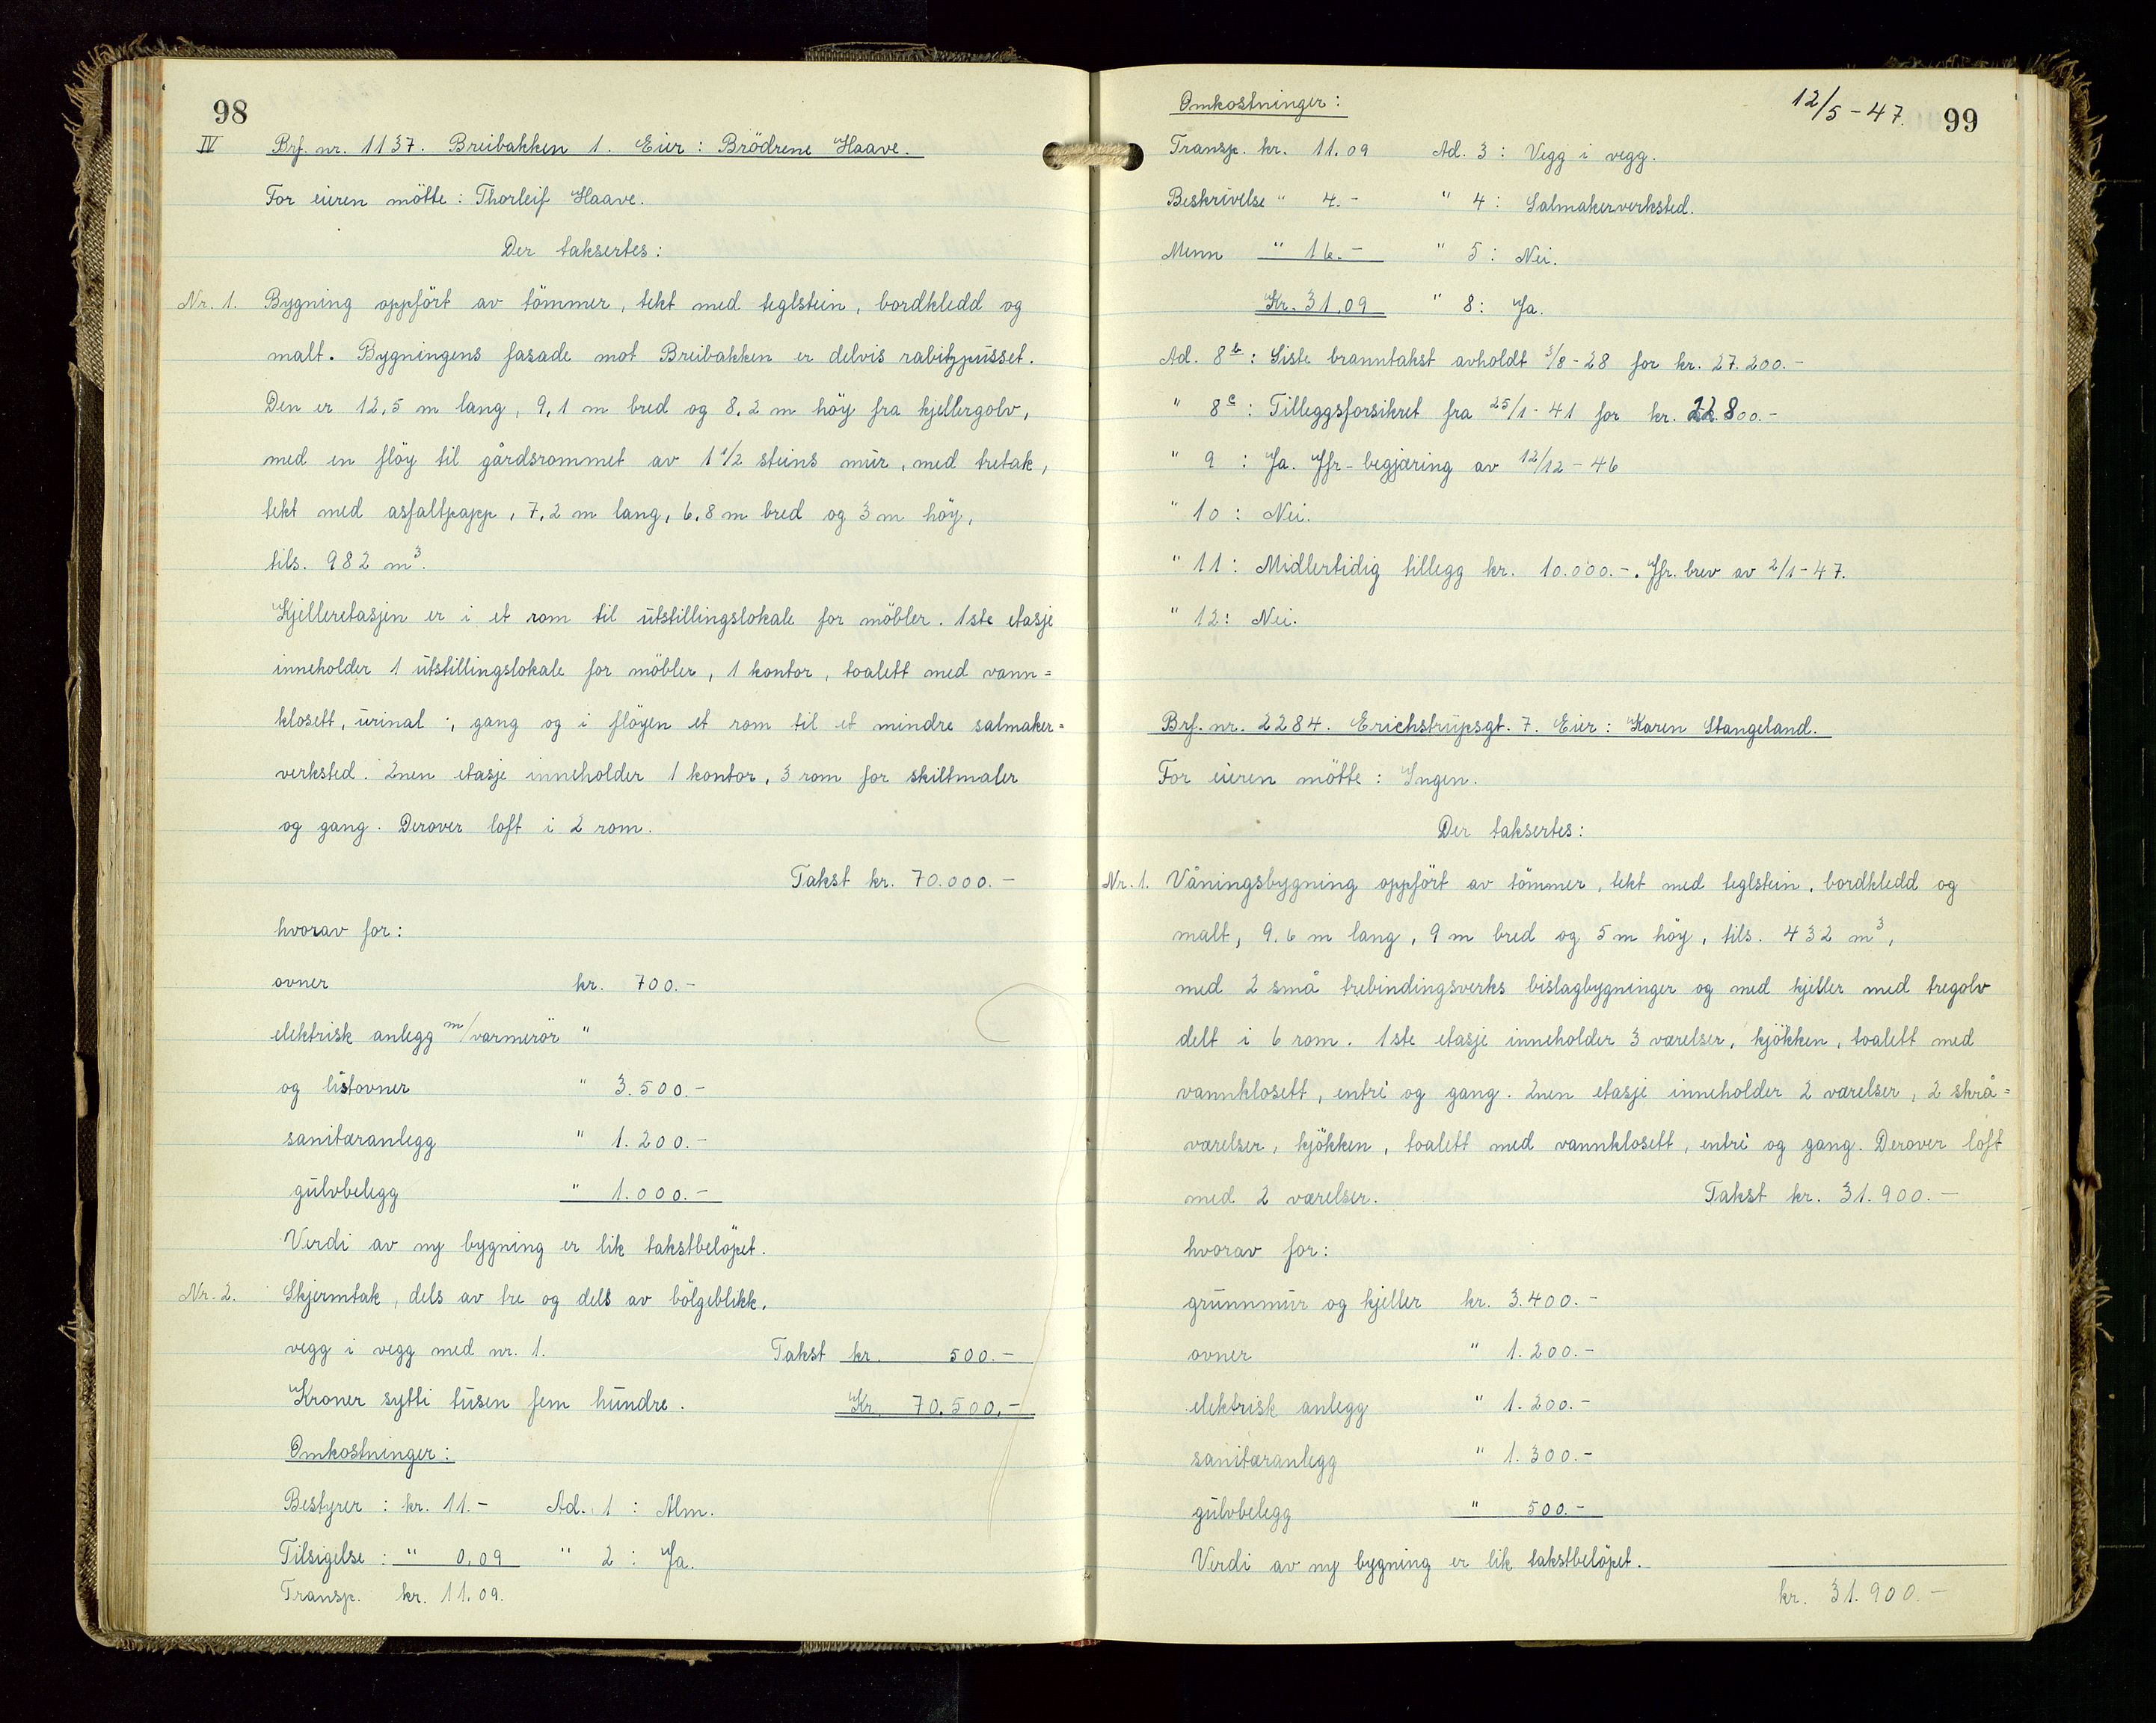 98
IV Brf. nr. 1137. Breibakken 1. Eier: Brödrene Haave.
For eieren mötte: Thorleif Haave.
Der taksertes:
Nr. 1. Bygning oppfört av tömmer, tekt med teglstein, bordkledd og
malt. Bygningens fasade mot Breibakken er delvis rabitzpusset.
Den er 12,5 m lang, 9,1 m bred og 8,2 m höy fra kjellergolv,
med en flöy til gårdsrommet av 1 1/2 steins mur, med tretak,
tekt med asfaltpapp, 7,2 m lang, 6,8 m bred og 3 m höy,
tils. 982 m³.
Kjelleretasjen er i et rom til utstillingslokale for möbler. 1ste etasje
inneholder 1 utstillingslokale for möbler, 1 kontor, toalett med vann=
klosett, urinal :, gang og i flöyen et rom til et mindre salmaker=
verksted. 2nen etasje inneholder 1 kontor, 3 rom for skiltmaler
og gang. Derover loft i 2 rom.
Takst kr. 70.000.-
hvorav for:
ovner kr. 700.-
elektrisk anlegg m/varmerör "
og listovner " 3.500.-
sanitæranlegg " 1.200.-
gulvbelegg " 1.000.-
Verdi av ny bygning er lik takstbelöpet.
Nr. 2. Skjermtak, dels av tre og dels av bölgeblikk,
vegg i vegg med nr. 1. Takst kr. 500.-
Kroner sytti tusen fem hundre. Kr. 70.500,-
Omkostninger:
Bestyrer : kr. 11.- Ad. 1 : Alm.
Tilsigelse : " 0,09 " 2 : Ja.
Transp. kr. 11.09.
12/5-47. 99
Omkostninger:
Transp. kr. 11.09 Ad. 3 : Vegg i vegg.
Beskrivelse " 4.- " 4 : Salmakerverksted.
Menn " 16.- " 5 : Nei.
Kr. 31.09 " 8 : Ja.
Ad. 8b : Siste branntakst avholdt 3/8-28 for kr. 27.200.-
" 8c : Tilleggsforsikret fra 25/1-41 for kr. 22.800.-
" 9 : Ja. Jfr- begjæring av 12/12-46
" 10 : Nei.
" 11 : Midlertidig tillegg kr. 10.000.-. Jfr. brev av 2/1-47.
" 12 : Nei.
Brf. nr. 2284. Erichstrupsgt. 7. Eier: Karen Stangeland.
For eieren mötte : Ingen.
Der taksertes:
Nr. 1. Våningsbygning oppfört av tömmer, tekt med teglstein, bordkledd og
malt, 9.6 m lang, 9 m bred og 5 m höy, tils. 432 m³,
med 2 små trebindingsverks bislagbygninger og med kjeller med tregolv
delt i 6 rom. 1ste etasje inneholder 3 værelser, kjökken, toalett med
vannklosett, entré og gang. 2nen etasje inneholder 2 værelser, 2 skrå=
værelser, kjökken, toalett med vannklosett, entré og gang. Derover loft
med 2 værelser. Takst kr. 31.900.-
hvorav for:
grunnmur og kjeller kr. 3.400.-
ovner " 1.200.-
elektrisk anlegg " 1.200.-
sanitæranlegg " 1.300.-
gulvbelegg " 500.-
Verdi av ny bygning er lik takstbelöpet.
kr. 31.900.-